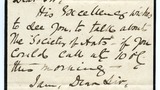 His Excellency wishes
to see you, to talk about
the Society of Arts. If you
could call at 10 o'c
this morning
I am, Dear Sir,